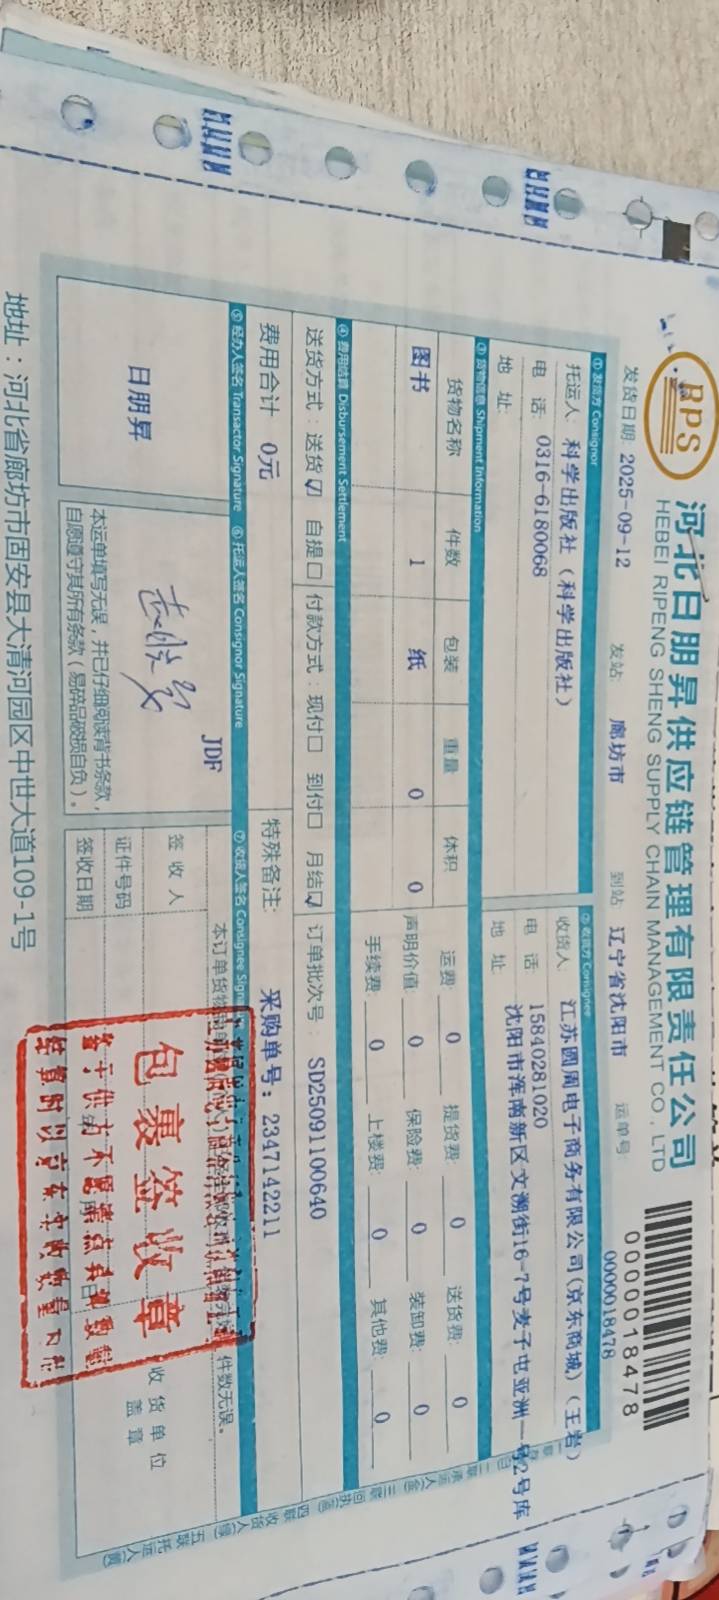 RPS
河北日朋昇供应链管理有限责任公司
HEBEI RIPENG SHENG SUPPLY CHAIN MANAGEMENT CO., LTD
0000018478
发货日期: 2025-09-12 发站: 廊坊市 到站: 辽宁省沈阳市 运单号: 0000018478
①发货方 Consignor ②收货方 Consignee
托运人: 科学出版社(科学出版社) 收货人: 江苏圆周电子商务有限公司(京东商城)(王岩)
电 话: 0316-6180068 电 话: 15840281020
地 址: 地 址: 沈阳市浑南新区文溯街16-7号麦子屯亚洲一号2号库
③货物信息 Shipment Information
货物名称 件数 包装 重量 体积 运费: 0 提货费: 0 送货费: 0
图书 1 纸 0 0 声明价值: 0 保险费: 0 装卸费: 0
手续费: 0 上楼费: 0 其他费: 0
④费用结算 Disbursement Settlement
送货方式: 送货☑ 自提□ 付款方式: 现付□ 到付□ 月结☑ 订单批次号: SD25091100640
费用合计 0元 特殊备注: 采购单号: 2347142211
⑤经办人签名 Transactor Signature ⑥托运人签名 Consignor Signature ⑦收货人签名 Consignee
JDF
本订单货物 件数无误。
日朋昇
签收人
证件号码
签收日期
收货单位
盖章
包裹签收章
本运单填写无误,并已仔细阅读背书条款,
自愿遵守其所有条款(易碎品破损自负)。
地址:河北省廊坊市固安县大清河园区中世大道109-1号